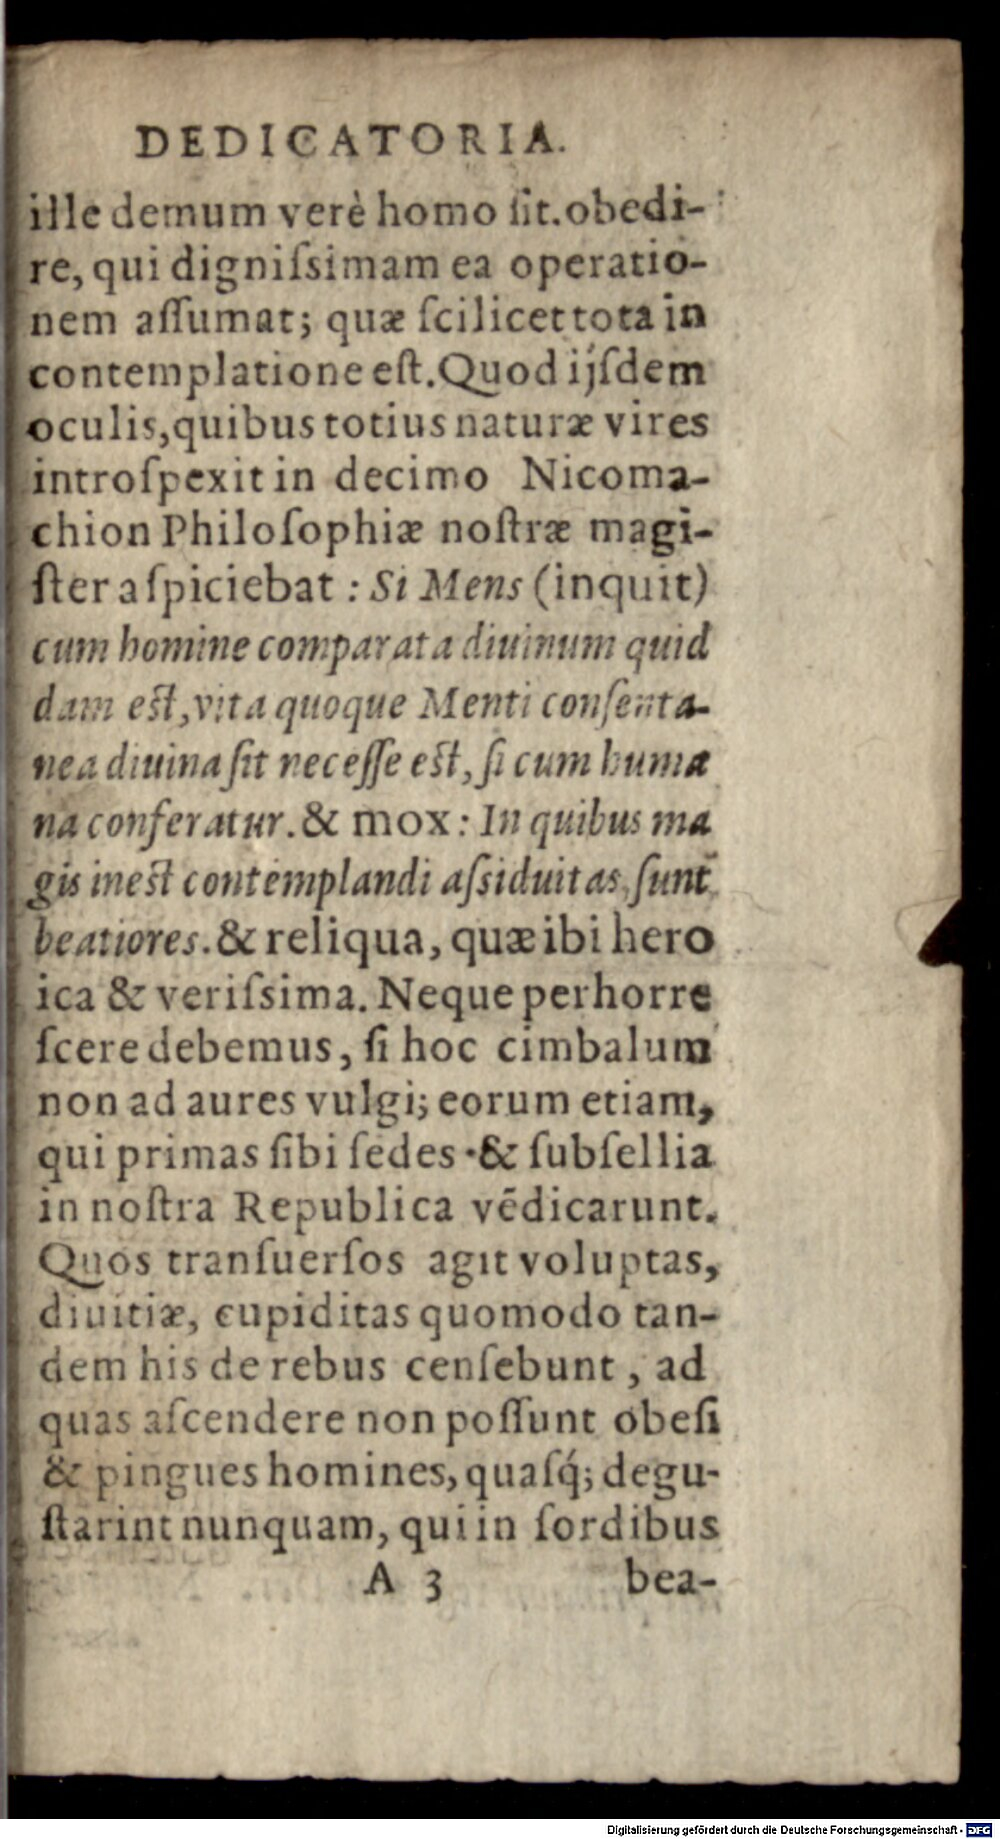 DEDICATORIA.
ille demum verè homo ſit. obedi-
re, qui digniſsimam ea operatio-
nem aſſumat; quæ ſcilicet tota in
contemplatione eſt. Quod ijſdem
oculis, quibus totius naturæ vires
introſpexit in decimo Nicoma-
chion Philoſophiæ noſtræ magi-
ſter aſpiciebat : Si Mens (inquit)
cum homine comparata diuinum quid
dam eſt, vita quoque Menti conſenta-
nea diuina ſit neceſſe eſt, ſi cum huma
na conferatur. & mox: In quibus ma
gis ineſt contemplandi aſsiduitas, ſunt
beatiores. & reliqua, quæ ibi hero
ica & veriſsima. Neque perhorre
ſcere debemus, ſi hoc cimbalum
non ad aures vulgi; eorum etiam,
qui primas ſibi ſedes & ſubſellia
in noſtra Republica vēdicarunt.
Quos tranſuerſos agit voluptas,
diuitiæ, cupiditas quomodo tan-
dem his de rebus cenſebunt, ad
quas aſcendere non poſſunt obeſi
& pingues homines, quaſq́; degu-
ſtarint nunquam, qui in ſordibus
A 3 bea-
Digitalisierung gefördert durch die Deutsche Forschungsgemeinschaft - DFG